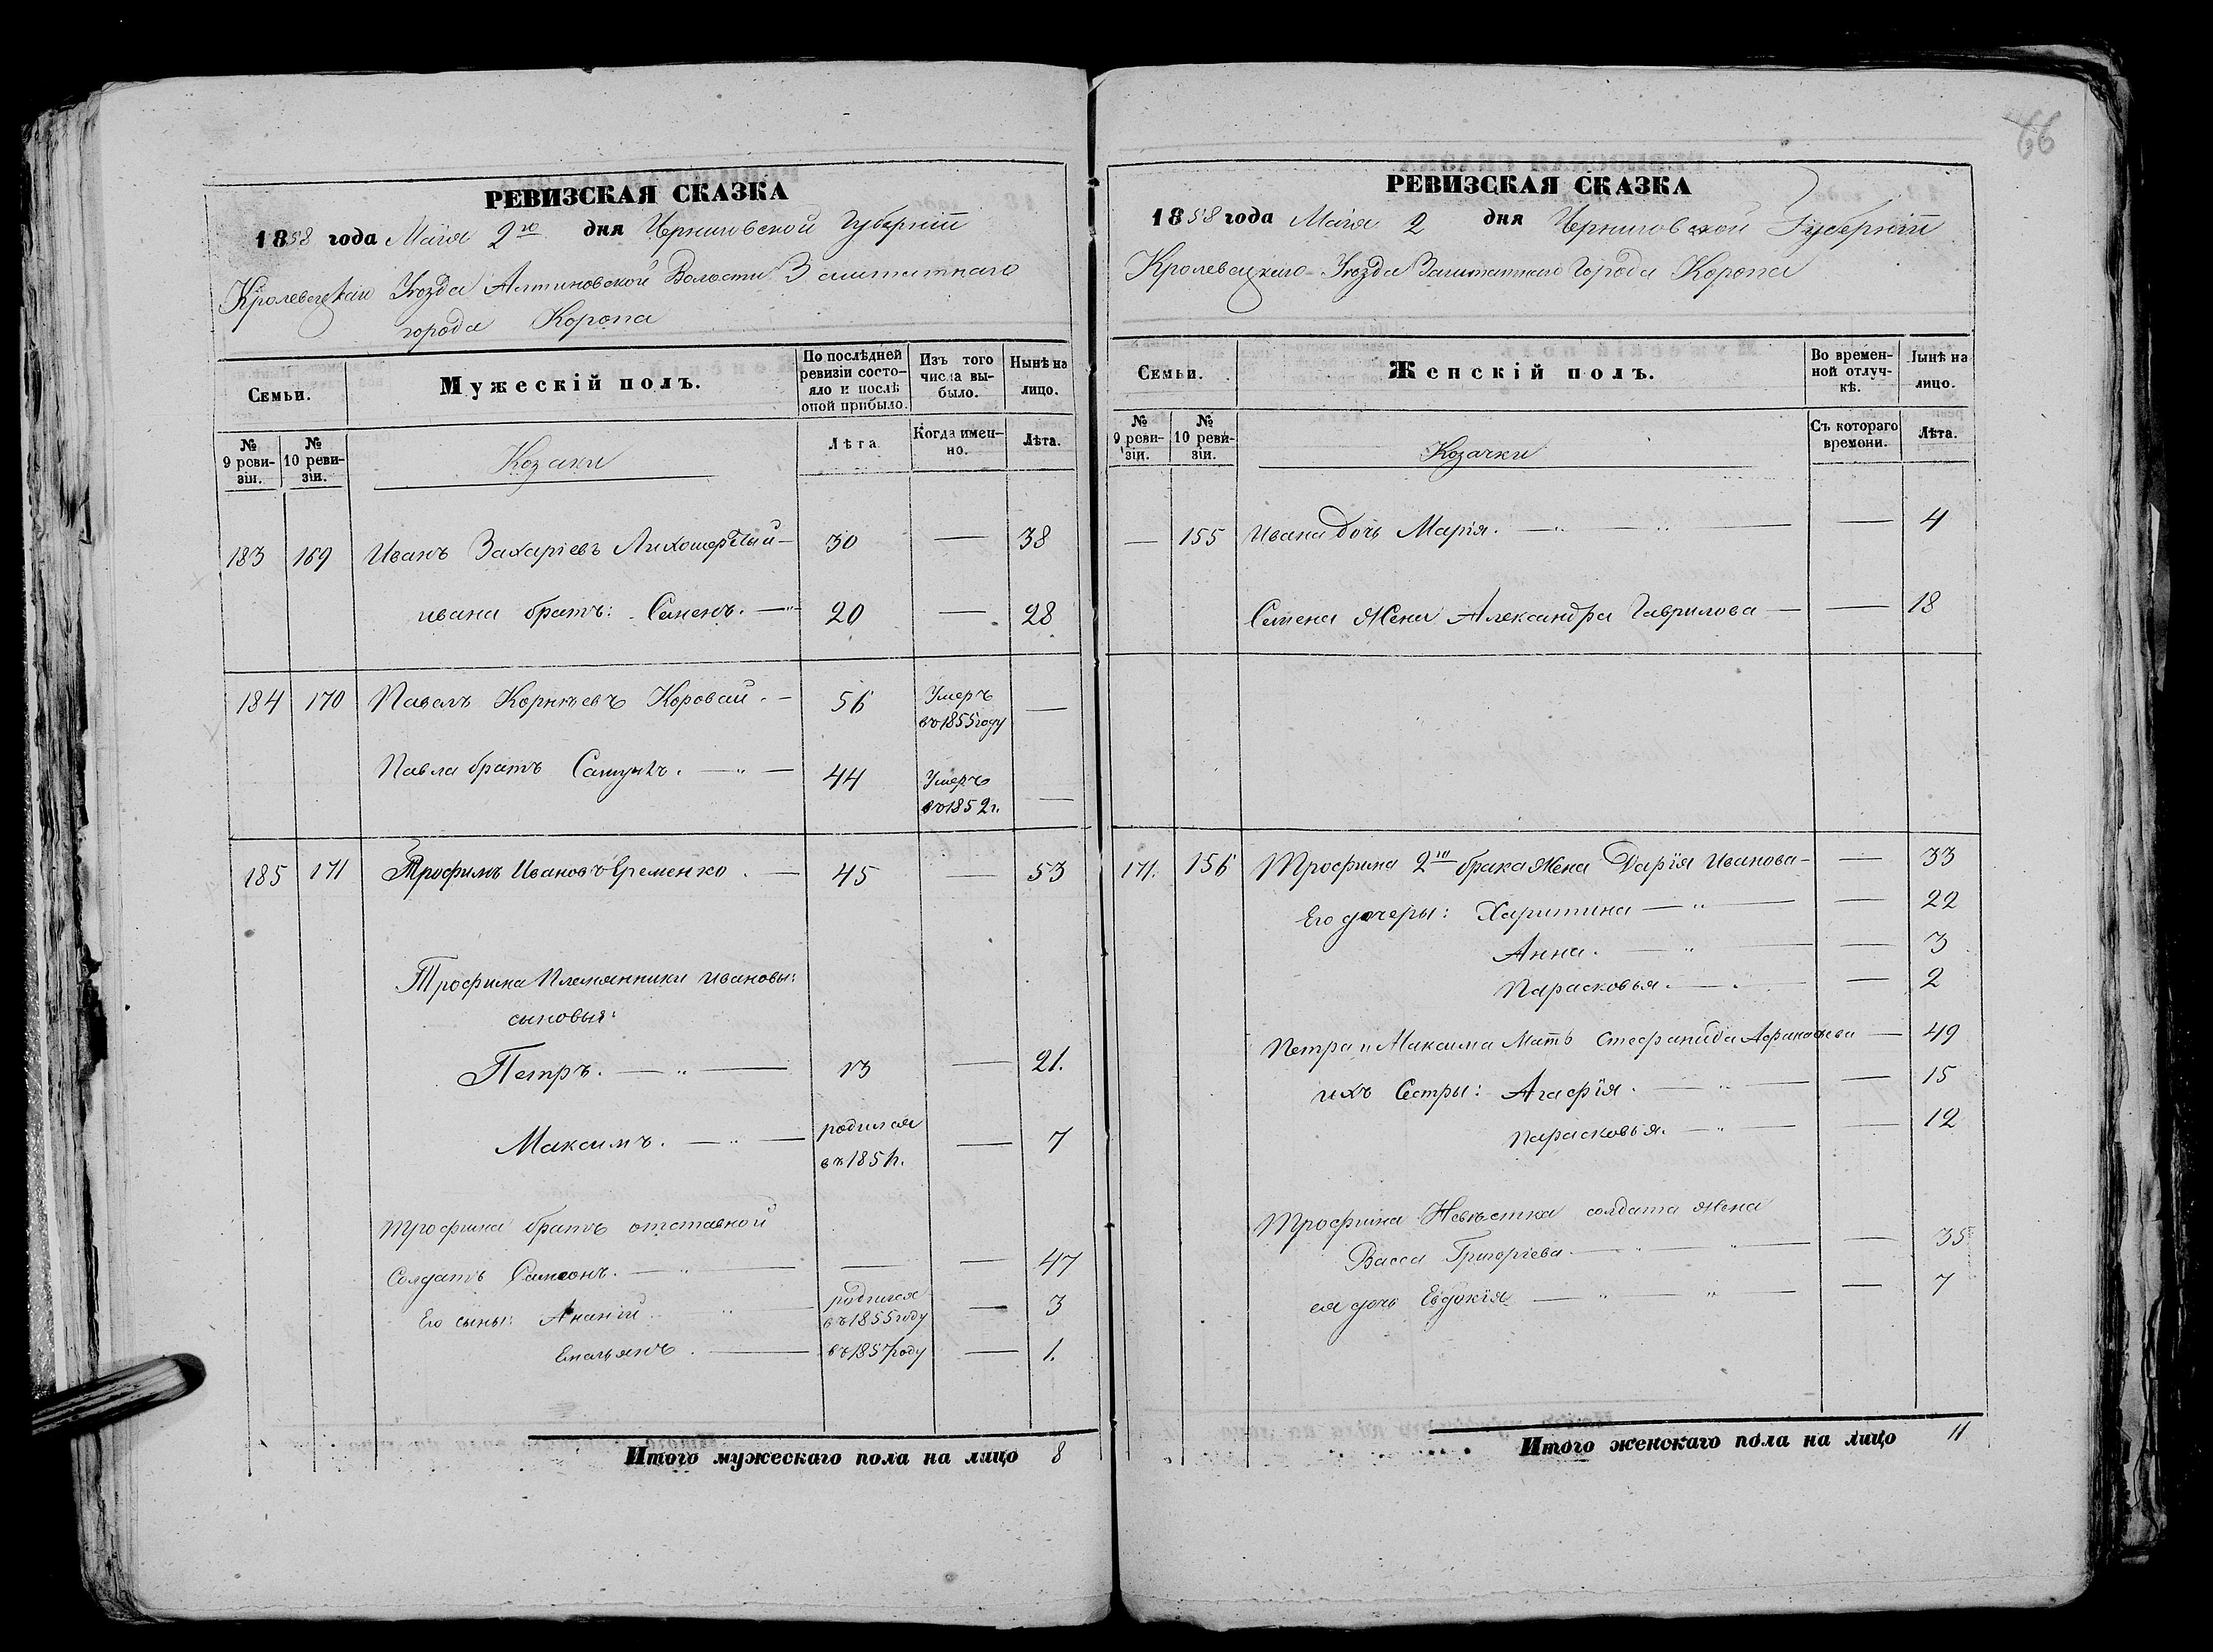 66
РЕВИЗСКАЯ СКАЗКА
1858 года Маія 2го дня Черниговской Губерніи
Кролевецкаго Уѣзда Алтиновской Волости Заштатнаго
города Коропа
Семьи.
Мужескій полъ.
По послѣдней ревизіи состояло и послѣ оной прибыло.
Изъ того числа выбыло.
Нынѣ на лицо.
№ 9 ревизіи.
№ 10 ревизіи.
Козаки
Лѣта
Когда именно.
Лѣта.
183 169 Иванъ Захаріевъ — 30 — 38
ивана братъ: Семенъ. — 20 — 28
184 170 Павелъ Корнѣевъ Коровай. — 56 Умеръ въ 1855 году —
Павла братъ — 44 Умеръ въ 1852 г. —
185 171 Трофимъ Ивановъ Єременко. — 45 — 53
Трофима Племянники ивановы:
сыновья:
Петръ. — 13 — 21.
Максимъ. — родился въ 1851 г. — 7
Трофима братъ отставной
Солдатъ Самсонъ. — — — 47
Его сыны: Ананій. — родился въ 1855 году — 3
Емельянъ. — въ 1857 году — 1.
Итого мужескаго пола на лицо 8
РЕВИЗСКАЯ СКАЗКА
1858 года Маія 2 дня Черниговской Губерніи
Кролевецкаго Уѣзда Заштатнаго Города Коропа
Семьи.
Женскій полъ.
Во временной отлучкѣ.
Нынѣ на лицо.
№ 9 ревизіи.
№ 10 ревизіи.
Козачки
Съ котораго времени.
Лѣта.
— 155 Ивана дочь Марія. — — 4
Семена Жена Александра Гаврилова — — 18
171. 156 Трофима 2го брака Жена Дарія Иванова — — 33
Его дочеры: Харитина — — 22
Анна. — — 3
Парасковья. — — 2
Петра и Максима Мать Стефанида Афанасьева — 49
ихъ Сестры: Агафія. — — 15
Парасковья. — — 12
Трофима Невѣстка солдата жена
Васса Григорьева. — — 35
ея дочь Евдокія — — 7
Итого женскаго пола на лицо 11